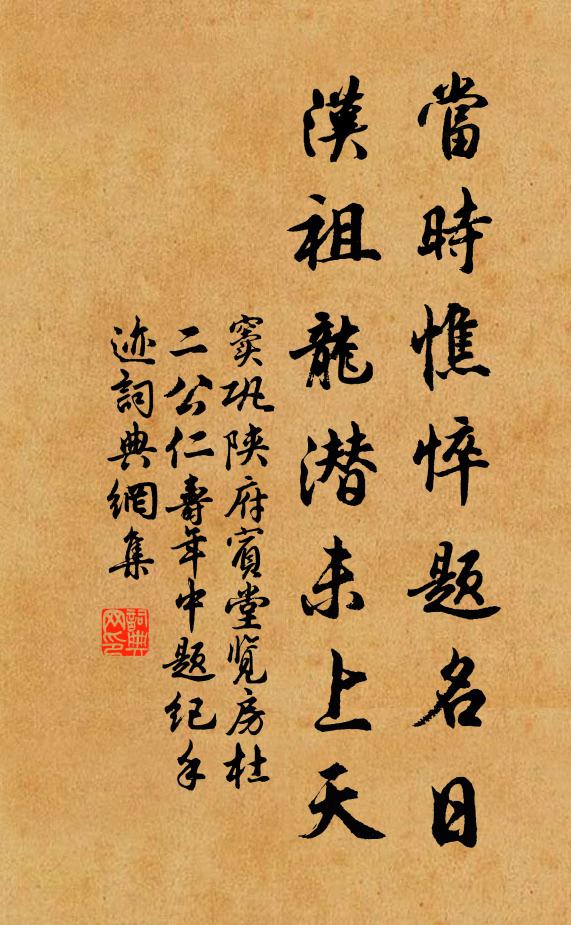 當時憔悴題名日
漢祖龍潜未上天
竇巩陝府賓堂覧房杜
二公仁壽年中題紀手
迹詞典網集
詞典
网印